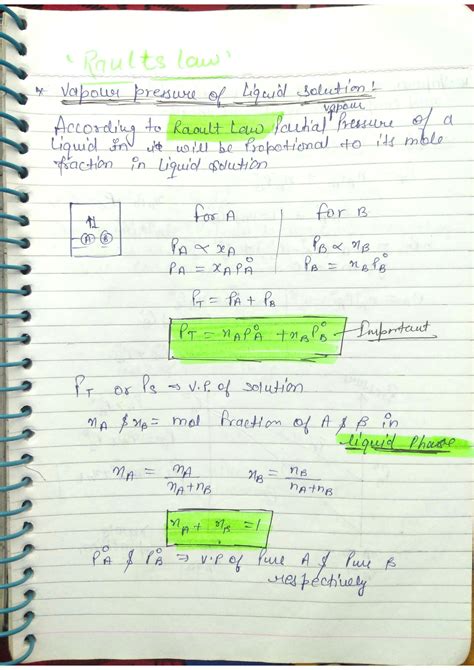 'Raults law'
* Vapour pressure of liquid solution!
According to Raoult Law Partial vapour Pressure of a
liquid in it will be Propotional to its mole
fraction in liquid solution
A B
for A for B
PA ∝ xA PB ∝ xB
PA = xAP°A PB = xBP°B
PT = PA + PB
PT = xAP°A + xBP°B — Important
PT or Ps ⇒ V.P. of solution
xA & xB = mol fraction of A & B in
liquid Phase
xA = nA/nA+nB xB = nB/nA+nB
xA + xB = 1
P°A & P°B ⇒ V.P of Pure A & Pure B
respectively